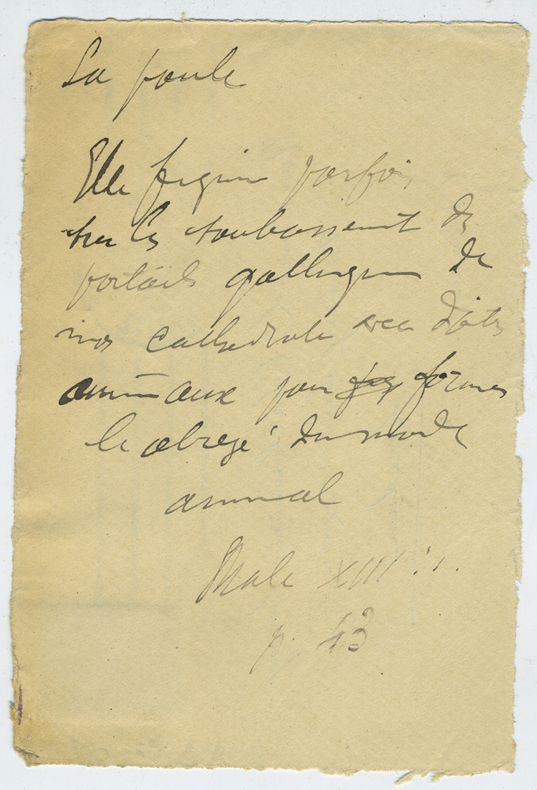 La poule
Elle figure parfois
sur les soubassements des
portails gothiques de
nos cathédrales avec d'autres
animaux pour former
le abrégé du monde
animal
Male XIII s.
p. 43